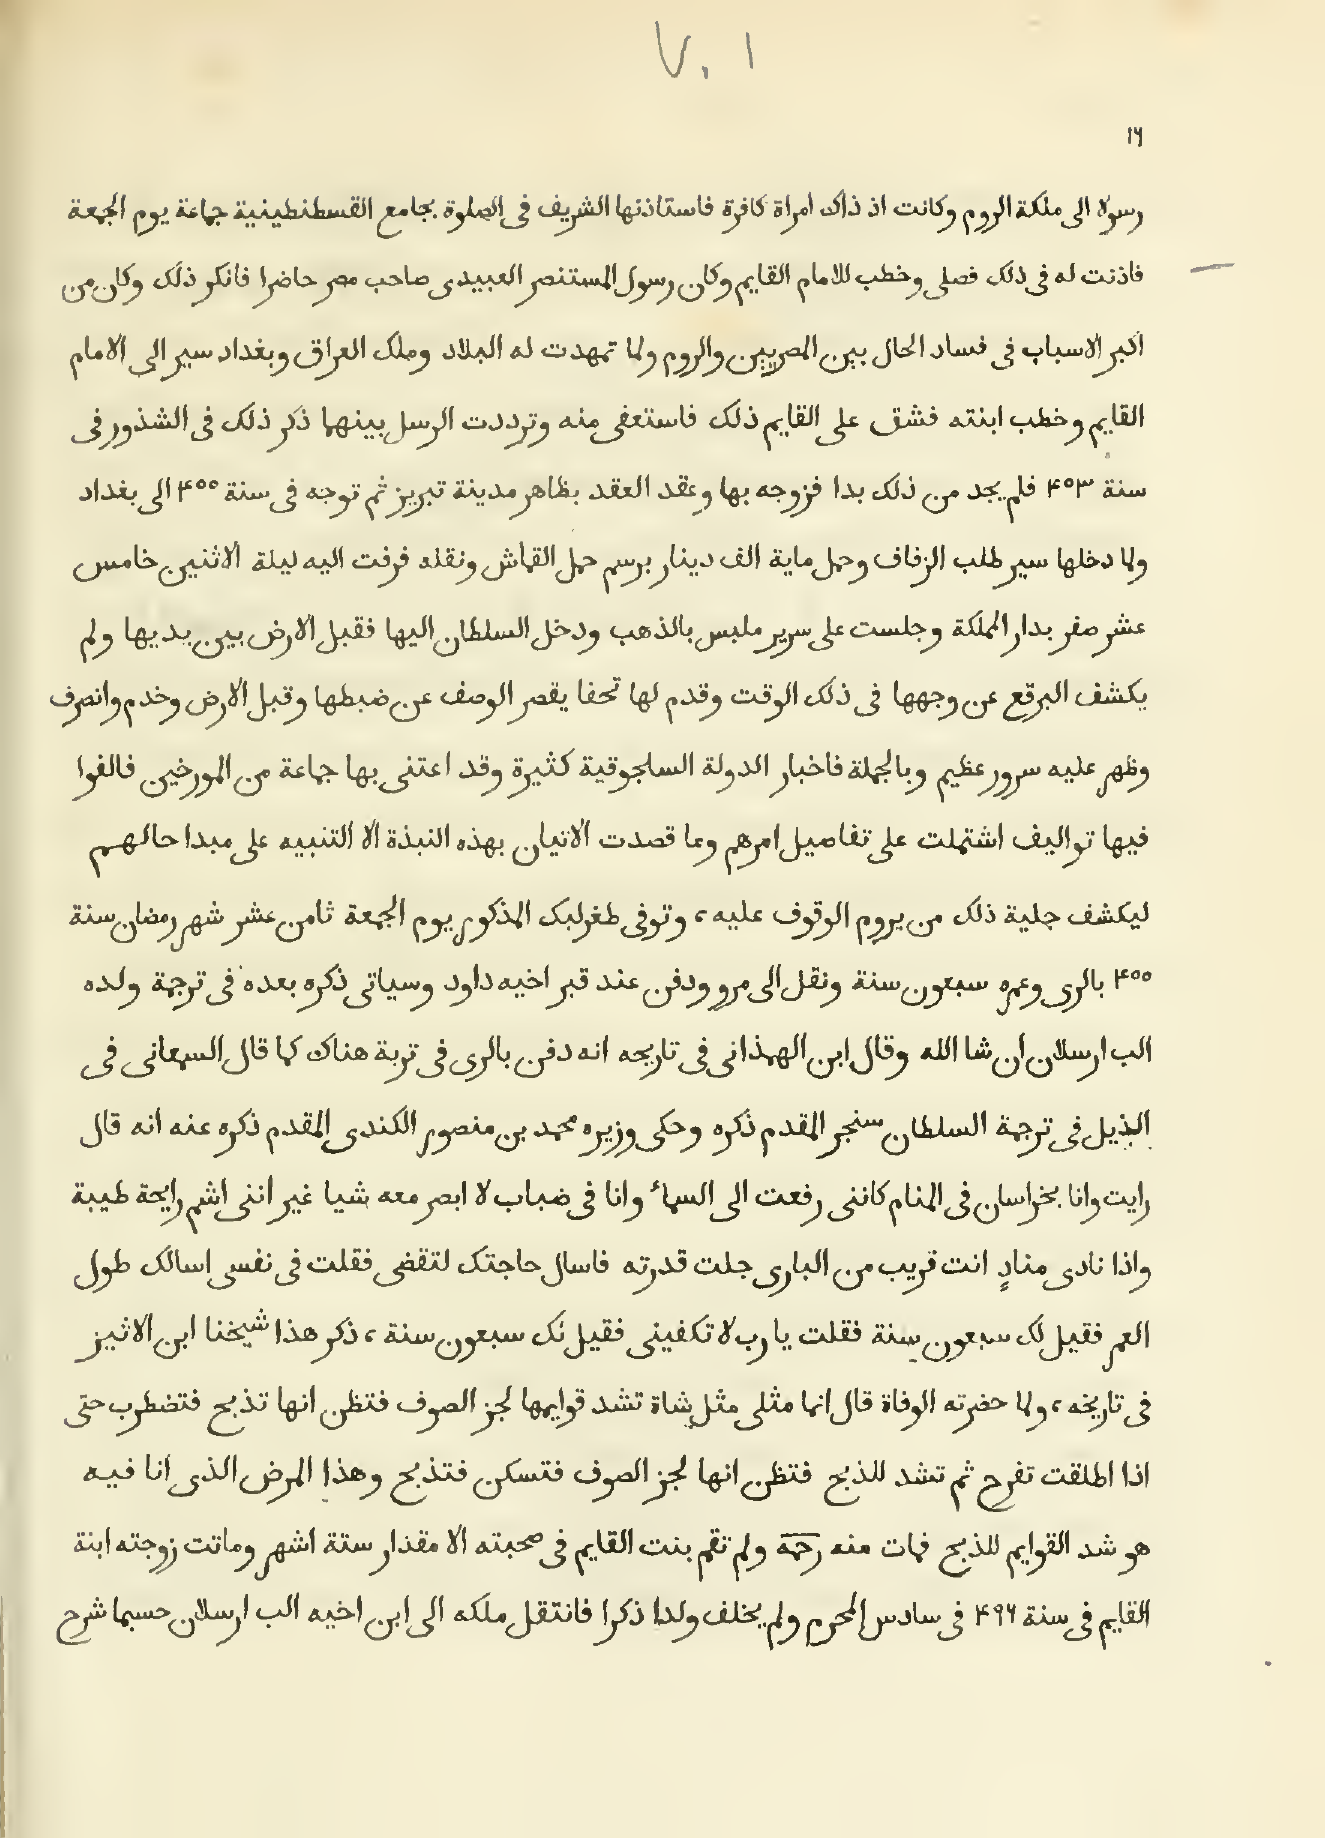 ٧٠١
١٦
رسولا الى ملكة الروم وكانت اذ ذاك امراة كافرة فاستاذنها الشريف فى الصلوة بجامع القسطنطينية جماعة يوم الجمعة
فاذنت له فى ذلك فصلى وخطب للامام القايم وكان رسول المستنصر العبيدى صاحب مصر حاضرا فانكر ذلك وكان من
اكبر الاسباب فى فساد الحال بين المصريين والروم ولما تمهدت له البلاد وملك العراق وبغداد سير الى الامام
القايم وخطب ابنته فشق على القايم ذلك فاستعفى منه وترددت الرسل بينهما ذكر ذلك فى الشذور فى
سنة ۴۵۳ فلم يجد من ذلك بدا فزوجه بها وعقد العقد بظاهر مدينة تبريز ثم توجه فى سنة ۴۵۵ الى بغداد
ولما دخلها سير طلب الزفاف وحمل ماية الف دينار برسم حمل القماش ونقله فزفت اليه ليلة الاثنين خامس
عشر صفر بدار المملكة وجلست على سرير ملبس بالذهب ودخل السلطان اليها فقبل الارض بين يديها ولم
يكشف البرقع عن وجهها فى ذلك الوقت وقدم لها تحفا يقصر الوصف عن ضبطها وقبل الارض وخدم وانصرف
وظهر عليه سرور عظيم وبالجملة فاخبار الدولة السلجوقية كثيرة وقد اعتنى بها جماعة من المورخين فالفوا
فيها تواليف اشتملت على تفاصيل امرهم وما قصدت الاتيان بهذه النبذة الا التنبيه على مبدا حالهم
ليكشف جلية ذلك من يروم الوقوف عليه ، وتوفى طغرلبك المذكور يوم الجمعة ثامن عشر شهر رمضان سنة
۴۵۵ بالرى وعمره سبعون سنة ونقل الى مرو ودفن عند قبر اخيه داود وسياتى ذكره بعده فى ترجمة ولده
الب ارسلان ان شا الله وقال ابن الهمذانى فى تاريخه انه دفن بالرى فى تربة هناك كما قال السمعانى فى
الذيل فى ترجمة السلطان سنجر المقدم ذكره وحكى وزيره محمد بن منصور الكندى المقدم ذكره عنه انه قال
رايت وانا بخراسان فى المنام كاننى رفعت الى السماء وانا فى ضباب لا ابصر معه شيا غير اننى اشم رايحة طيبة
واذا نادى منادٍ انت قريب من البارى جلت قدرته فاسال حاجتك لتقضى فقلت فى نفسى اسالك طول
العمر فقيل لك سبعون سنة فقلت يا رب لا تكفينى فقيل لك سبعون سنة ، ذكر هذا شيخنا ابن الاثير
فى تاريخه ، ولما حضرته الوفاة قال انما مثلى مثل شاة تشد قوايمها لجز الصوف فتظن انها تذبح فتضطرب حتى
اذا اطلقت تفرح ثم تشد للذبح فتظن انها لجز الصوف فتسكن فتذبح وهذا المرض الذى انا فيه
هو شد القوايم للذبح فمات منه رحمه ولم تقم بنت القايم فى صحبته الا مقدار ستة اشهر وماتت زوجته ابنة
القايم فى سنة ۴۹۶ فى سادس المحرم ولم يخلف ولدا ذكرا فانتقل ملكه الى ابن اخيه الب ارسلان حسبما شرح